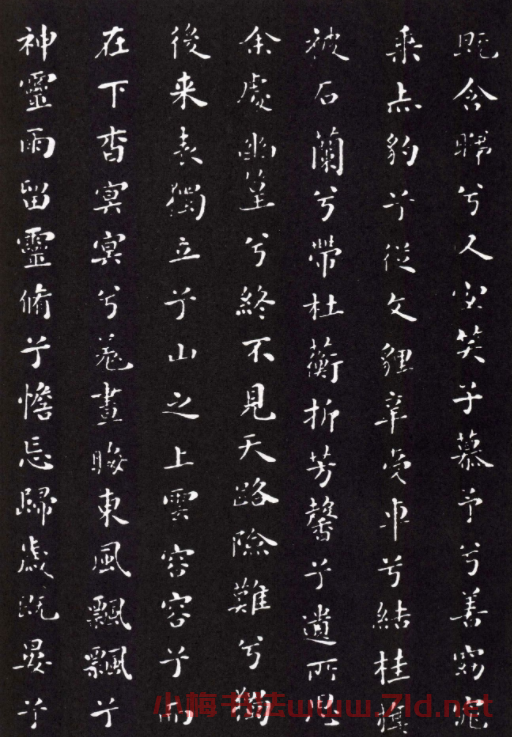 既含睇兮又宜笑子慕予兮善窈窕
乘赤豹兮從文貍辛夷車兮結桂旗
被石蘭兮帶杜蘅折芳馨兮遺所思
余處幽篁兮終不見天路險難兮獨
後來表獨立兮山之上雲容容兮而
在下杳冥冥兮羌晝晦東風飄飄兮
神靈雨留靈脩兮憺忘歸歲既晏兮
小梅书法www.7ld.net